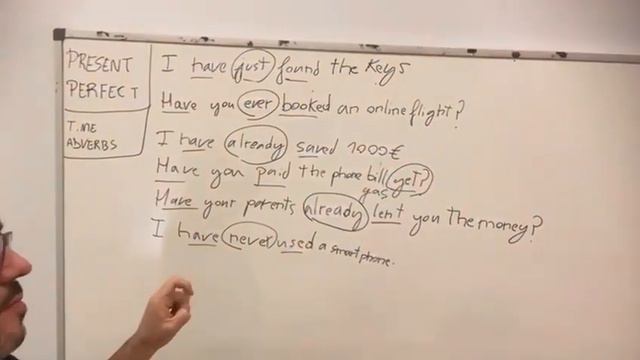 PRESENT
PERFECT
TIME
ADVERBS
I have just found the keys
Have you ever booked an online flight?
I have already saved 1000€
Have you paid the phone bill yet?
gas
Have your parents already lent you the money?
I have never used a smartphone.